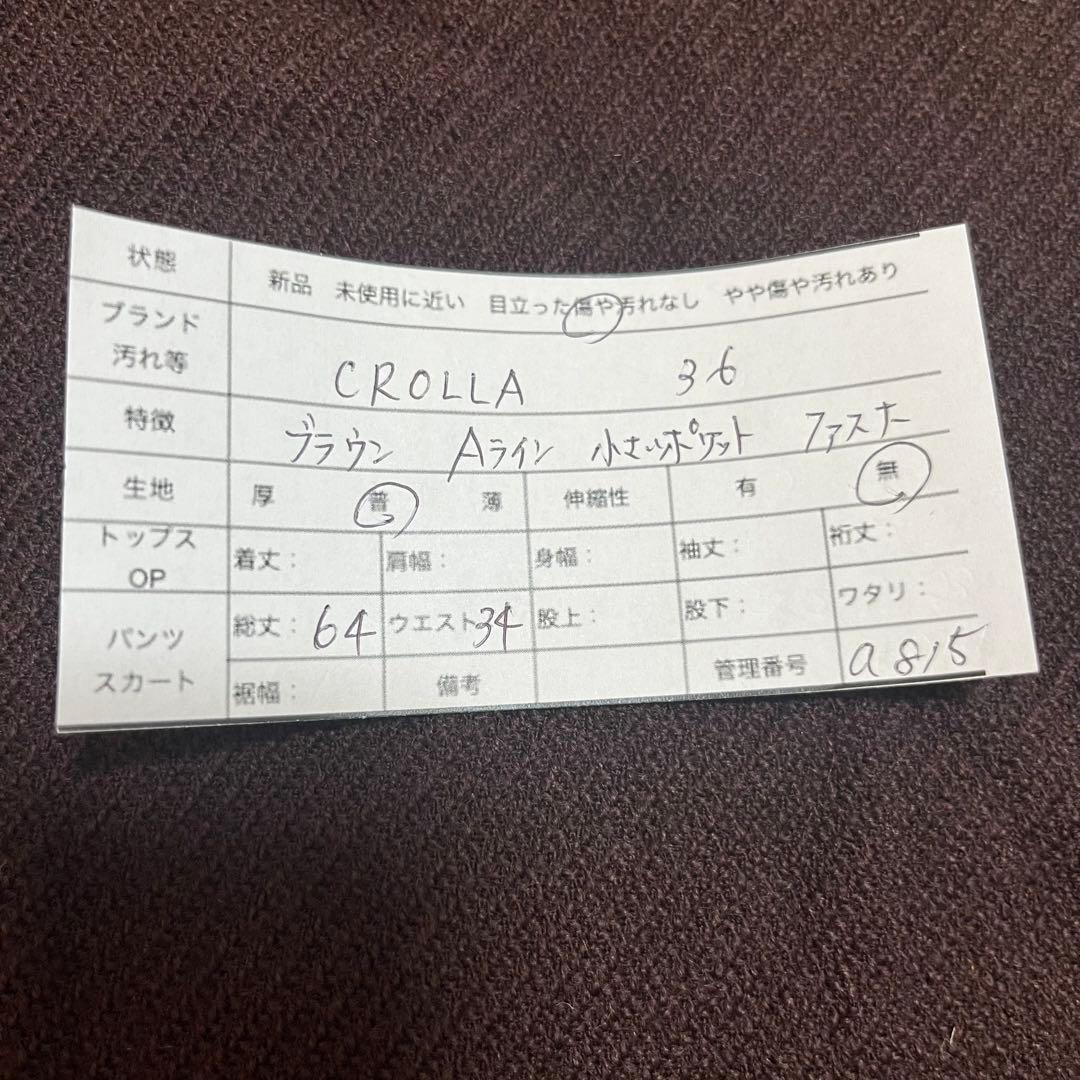 状態 新品 未使用に近い 目立った傷や汚れなし やや傷や汚れあり
ブランド
汚れ等 CROLLA 36
特徴 ブラウン Aライン 小さいポケット ファスナー
生地 厚 普 薄 伸縮性 有 無
トップス
OP 着丈： 肩幅： 身幅： 袖丈： 裄丈：
パンツ
スカート 総丈：64 ウエスト34 股上： 股下： ワタリ：
裾幅： 備考 管理番号 a815